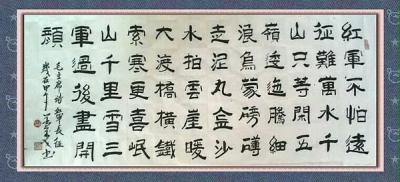 紅軍不怕遠
征難萬水千
山只等閑五
嶺逶迤騰細
浪烏蒙磅礴
走泥丸金沙
水拍雲崖暖
大渡橋橫鐵
索寒更喜岷
山千里雪三
軍過後盡開
顏
毛主席詩 長征
歲在甲午 書